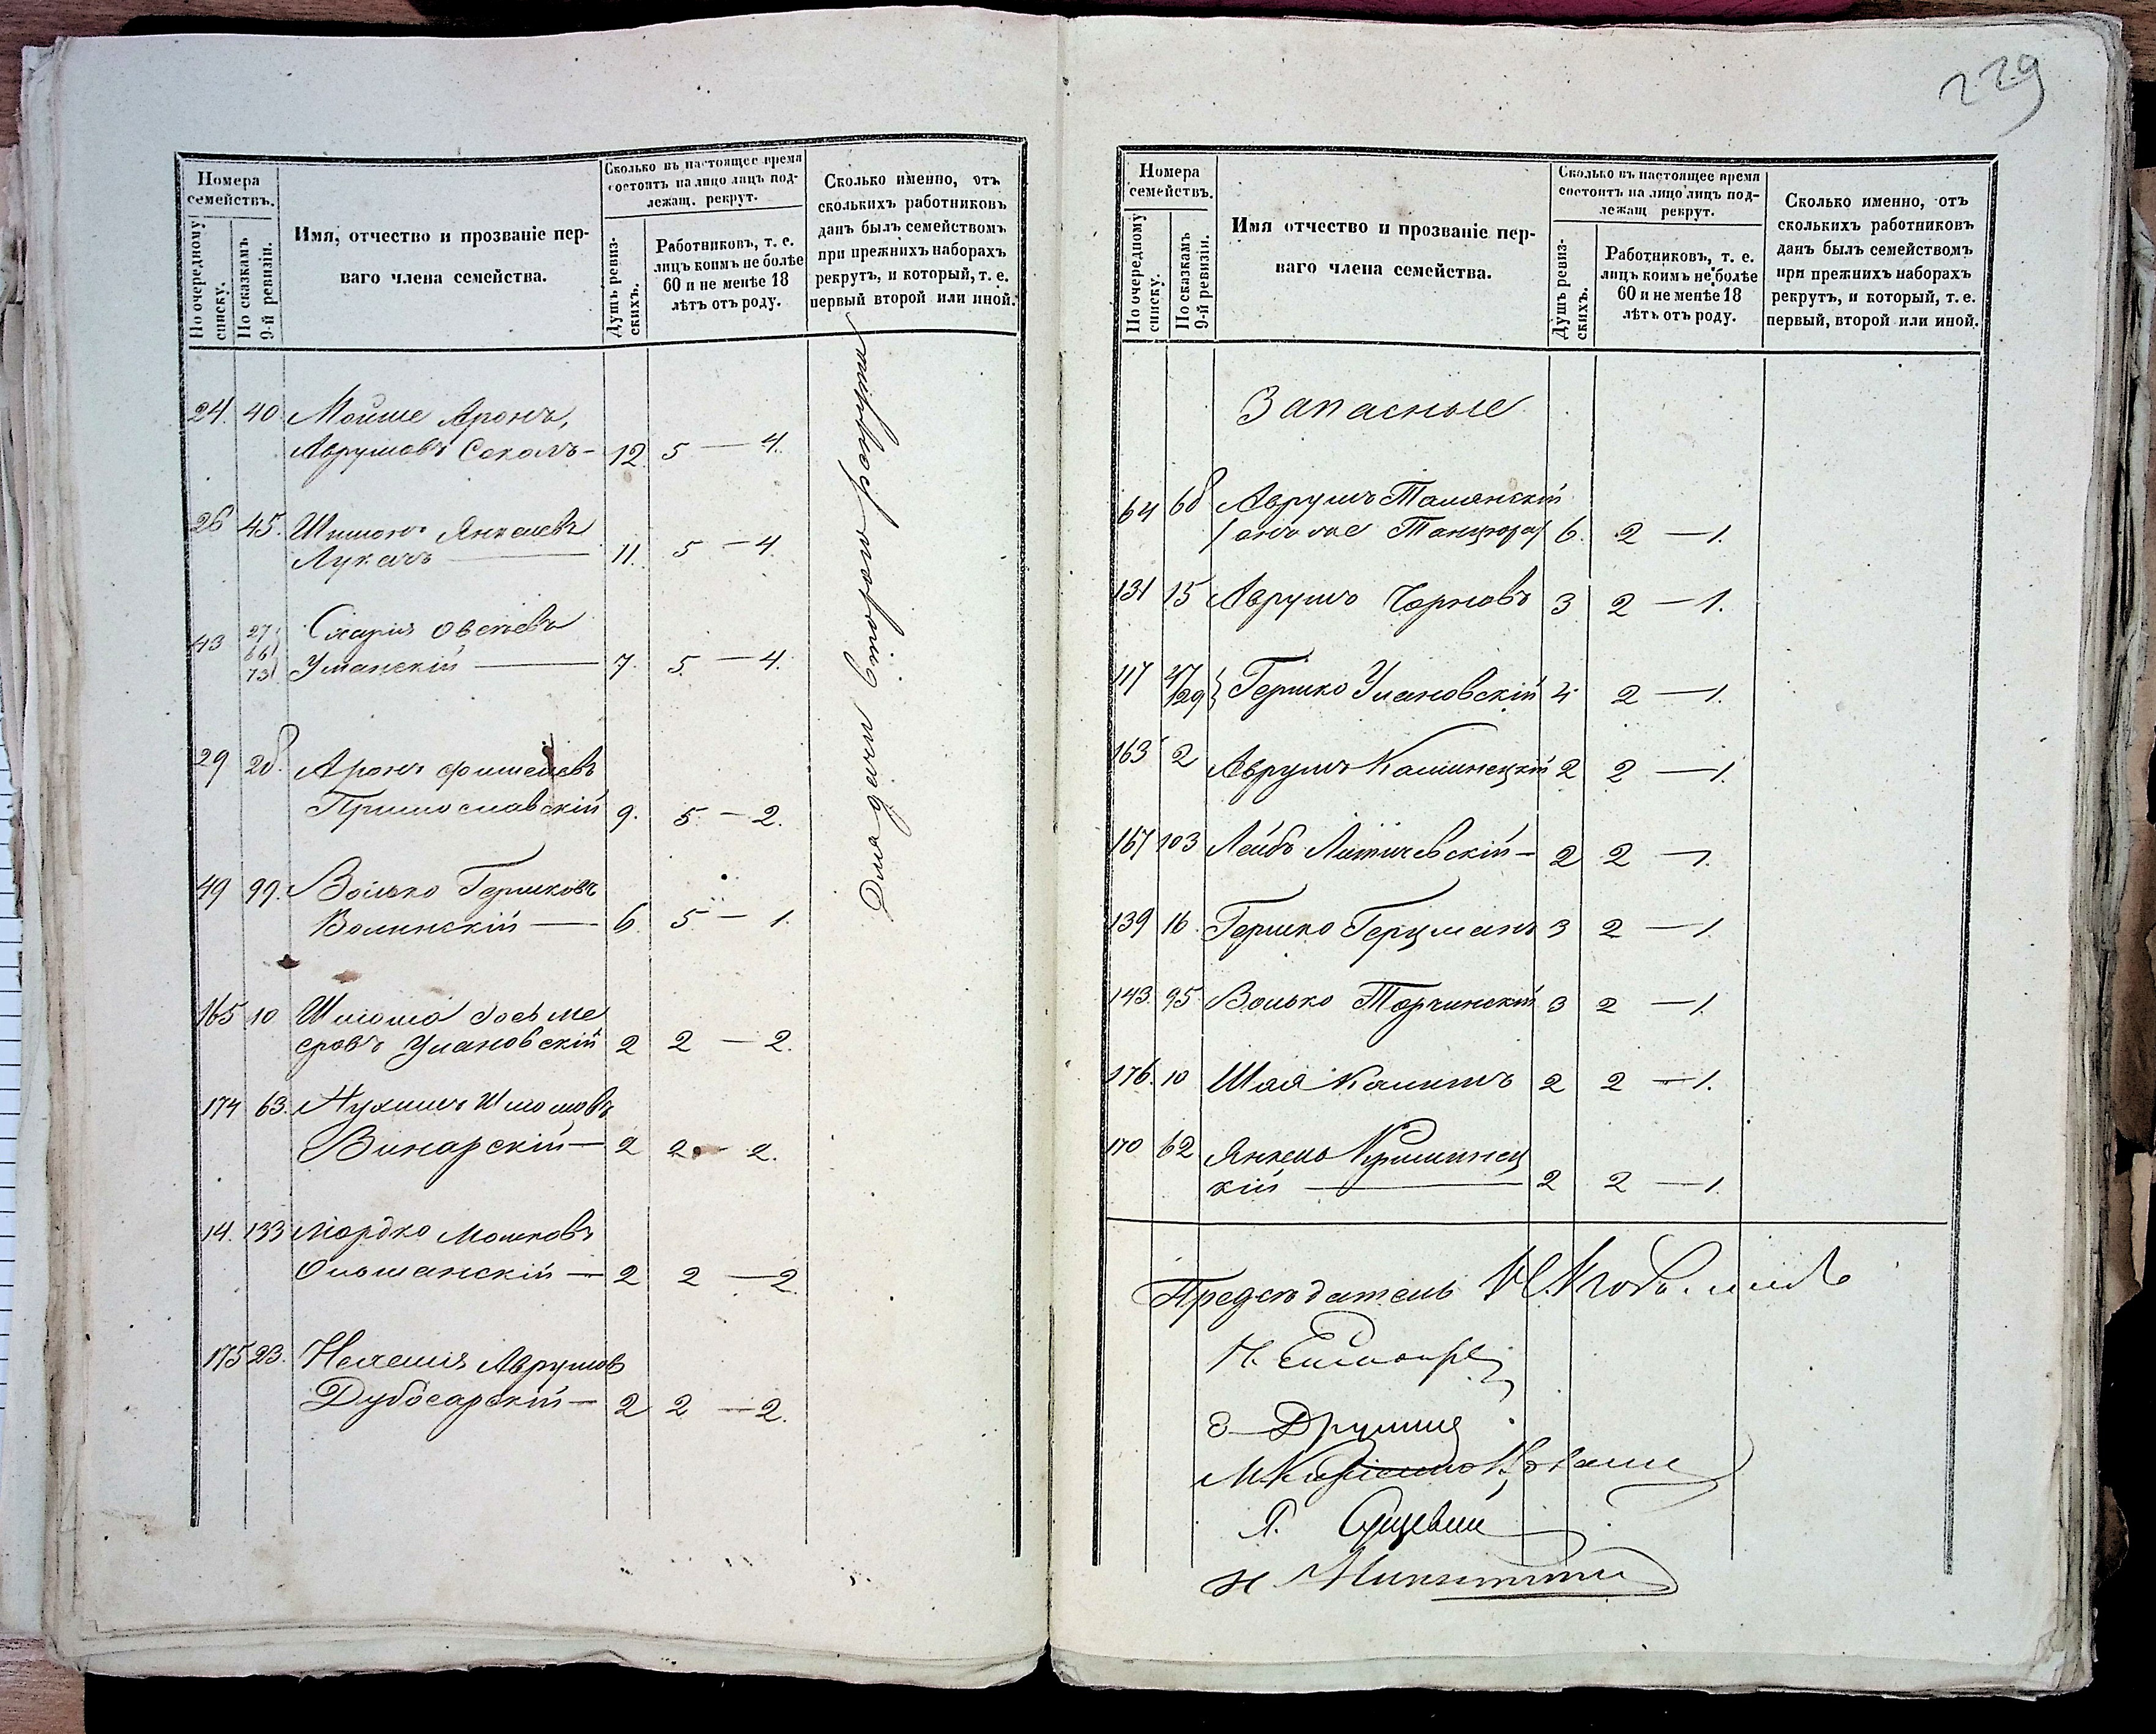 229
Номера
семействъ.
По очередному
списку.
По сказкамъ
9-й ревизіи.
Имя, отчество и прозваніе пер-
ваго члена семейства.
Сколько въ настоящее время
состоитъ на лицо лицъ под-
лежащ. рекрут.
Душъ ревиз-
скихъ.
Работниковъ, т. е.
лицъ коимъ не болѣе
60 и не менѣе 18
лѣтъ отъ роду.
Сколько именно, отъ
сколькихъ работниковъ
данъ былъ семействомъ
при прежнихъ наборахъ
рекрутъ, и который, т. е.
первый второй или иной.
24. 40. Мойше Аронъ,
Аврумовъ Соколъ - 12. 5 — 4.
26 45. Шимонъ Янкелевъ
Лукачъ 11. 5 — 4.
43 27 66 73 Схарія Овсеевъ
Уманскій 7. 5. — 4.
29 28. Аронъ Фишелевъ
9. 5 — 2.
49 99. Волько Гершковъ
Волинскій 6. 5 — 1.
165 10 Шлома Іось Ме
еровъ Улановскій 2 2 — 2.
174 63. Нухимъ Шломовъ
Винарскій 2 2 — 2.
14. 133 Мордко Мошковъ
Ольшанскій 2 2 — 2.
175 23. Нехемія Аврумов
Дубосарскій 2 2 — 2.
второго рекрута
Номера
семействъ.
По очередному
списку.
По сказкамъ
9-й ревизіи.
Имя отчество и прозваніе пер-
ваго члена семейства.
Сколько въ настоящее время
состоитъ на лицо лицъ под-
лежащ рекрут.
Душъ ревиз-
скихъ.
Работниковъ, т. е.
лицъ коимъ не болѣе
60 и не менѣе 18
лѣтъ отъ роду.
Сколько именно, отъ
сколькихъ работниковъ
данъ былъ семействомъ
при прежнихъ наборахъ
рекрутъ, и который, т. е.
первый, второй или иной.
Запасные
64 68 Аврумъ
онъ же 6. 2 — 1.
131 15 Аврумъ Чорновъ 3 2 — 1.
117 47/129 Гершко Улановскій 4 2 — 1.
163 2 Аврумъ Каминецкій 2 2 — 1.
167 103 Лейбъ Литичевскій 2 2 — 1.
139 16. Гершко Герцманъ 3 2 — 1.
143. 95 Волько Торчинскій 3 2 — 1.
176. 10 Шая 2 2 — 1.
170 62 Янкель
кій 2 2 — 1.
Предсѣдатель